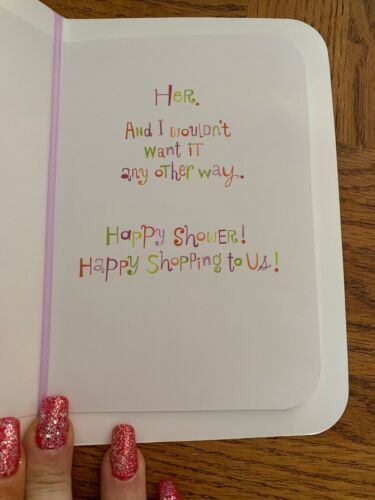 Her.
And I wouldn't
want it
any other way.
Happy Shower!
Happy Shopping to Us!